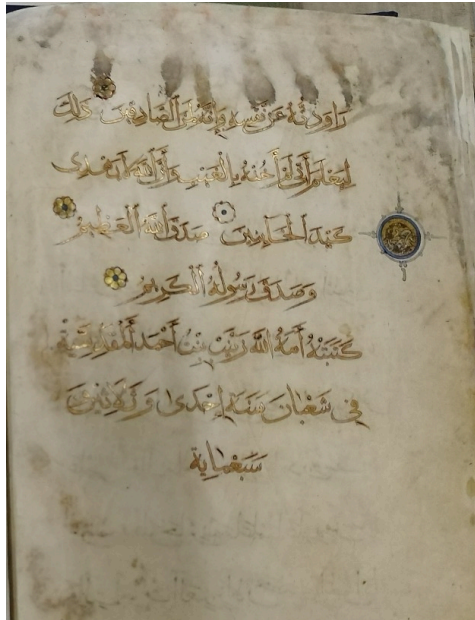 رَاوَدتُّهُ عَن نَّفْسِهِ وَإِنَّهُ لَمِنَ الصَّادِقِينَ ذَلِكَ
لِيَعْلَمَ أَنِّي لَمْ أَخُنْهُ بِالْغَيْبِ وَأَنَّ اللَّهَ لَا يَهْدِي
كَيْدَ الْخَائِنِينَ صَدَقَ اللَّهُ الْعَظِيمُ
وَصَدَقَ رَسُولُهُ الْكَرِيمُ
كَتَبَتْهُ أَمَةُ اللَّهِ زَيْنَب بِنْتُ أَحْمَد
فِي شَعْبَانَ سَنَةَ إِحْدَى وَثَلَاثِينَ
سَبْعِمِايَة